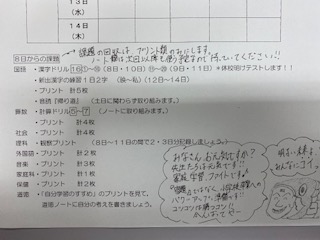 13日
(水)
14日
(木)
課題の回収は、プリント類のみにします。
ノート類は次回以降も使う予定なので持っていてください!!
8日からの課題
国語・漢字ドリル16①~⑮(8日・10日)⑧~㉘(9日・11日)*休校明けテストします!!
・新出漢字の練習1日2字(映~私)(12日~14日)
・プリント 計5枚
・音読「帰り道」(土日に関わらず取り組みます。)
算数・計算ドリル5~7(ノートに取り組みます。)
・プリント 計4枚
社会・プリント 計4枚
理科・観察プリント(8日~11日の間で2・3日分記録しましょう。)
外国語・プリント 計2枚
音楽・プリント 計3枚
家庭科・プリント 計1枚
保健・プリント 計2枚
道徳・「自分学習のすすめ」のプリントを見て、
道徳ノートに自分の考えを書きましょう。
お子さん元気ですか?
先生たちは元気です!
家庭学習、ファイトです。
"課題"ではなく、小学校卒業への
パワーアップ準備です!
コツコツは勝つコツ!!
がんばってやー
みんなに